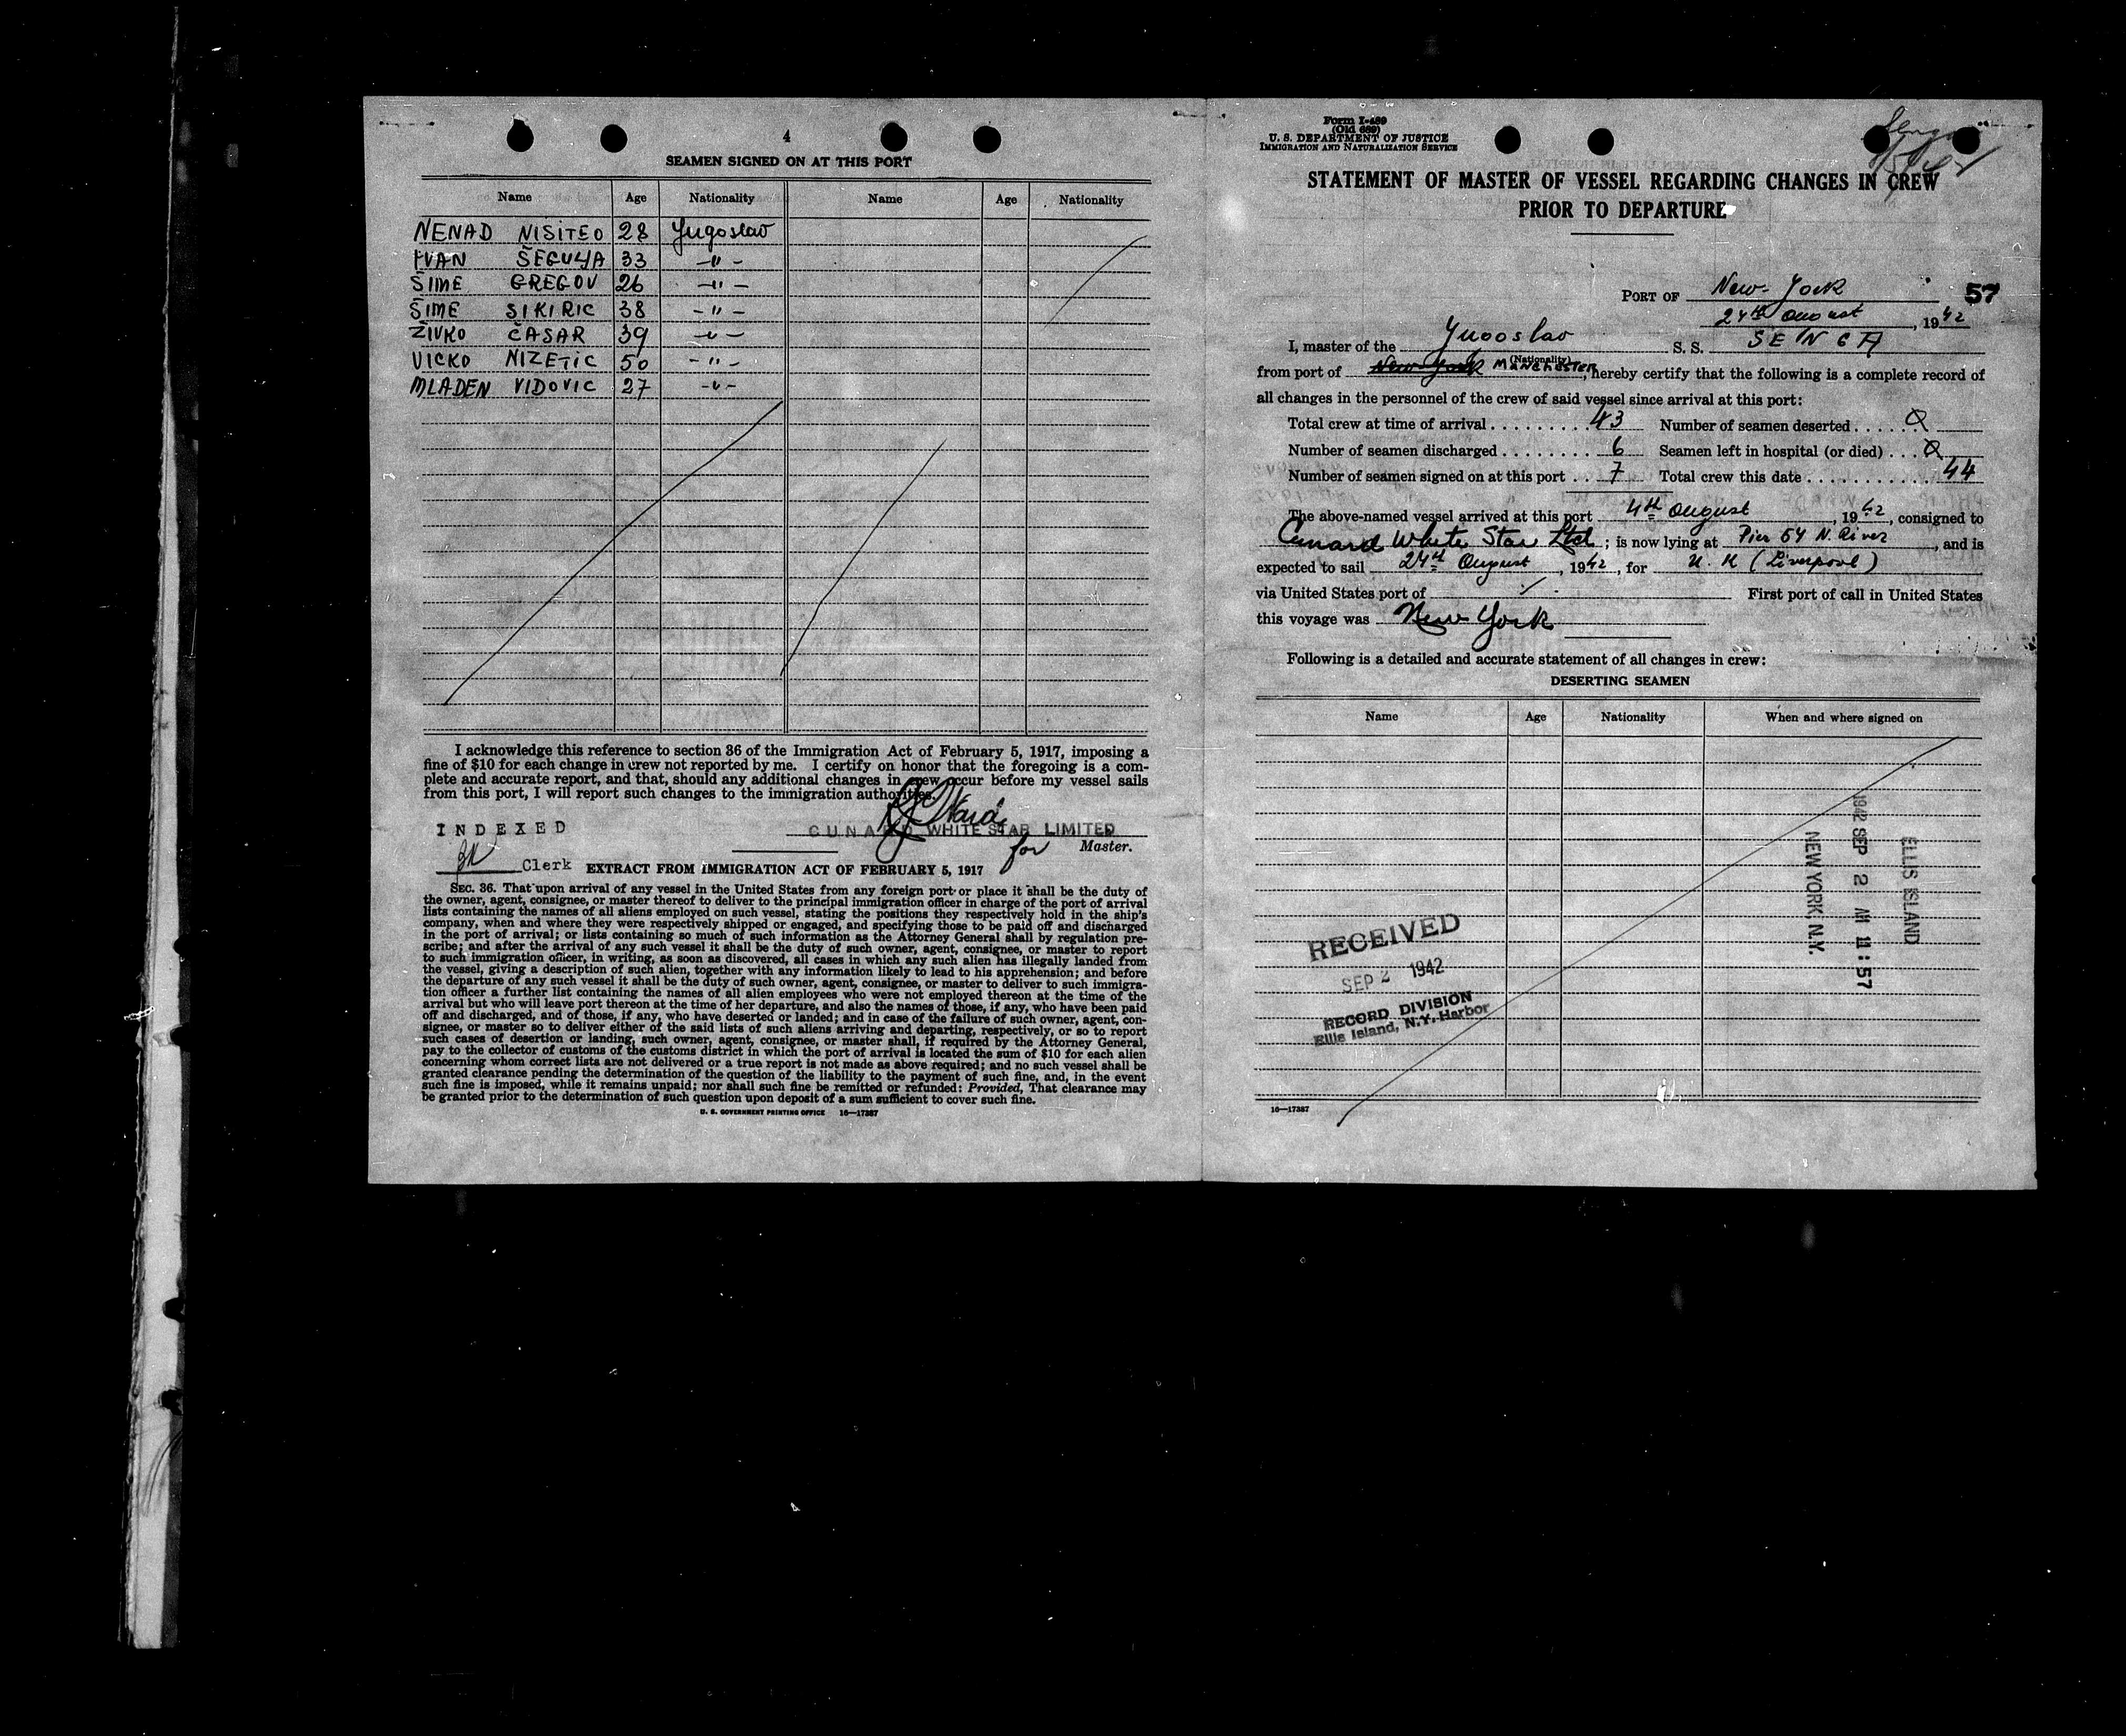 4
SEAMEN SIGNED ON AT THIS PORT
Name Age Nationality Name Age Nationality
NENAD NISITEO 28 Yugoslav
IVAN ŠEGULJA 33 -"-
ŠIME GREGOV 26 -"-
ŠIME SIKIRIC 38 -"-
ŽIVKO ČASAR 39 -"-
VICKO NIZETIC 50 -"-
MLADEN VIDOVIC 27 -"-
I acknowledge this reference to section 36 of the Immigration Act of February 5, 1917, imposing a
fine of $10 for each change in crew not reported by me. I certify on honor that the foregoing is a com-
plete and accurate report, and that, should any additional changes in crew occur before my vessel sails
from this port, I will report such changes to the immigration authorities.
INDEXED
CUNARD WHITE STAR LIMITED
for Master.
Clerk
EXTRACT FROM IMMIGRATION ACT OF FEBRUARY 5, 1917
SEC. 36. That upon arrival of any vessel in the United States from any foreign port or place it shall be the duty of
the owner, agent, consignee, or master thereof to deliver to the principal immigration officer in charge of the port of arrival
lists containing the names of all aliens employed on such vessel, stating the positions they respectively hold in the ship's
company, when and where they were respectively shipped or engaged, and specifying those to be paid off and discharged
in the port of arrival; or lists containing so much of such information as the Attorney General shall by regulation pre-
scribe; and after the arrival of any such vessel it shall be the duty of such owner, agent, consignee, or master to report
to such immigration officer, in writing, as soon as discovered, all cases in which any such alien has illegally landed from
the vessel, giving a description of such alien, together with any information likely to lead to his apprehension; and before
the departure of any such vessel it shall be the duty of such owner, agent, consignee, or master to deliver to such immigra-
tion officer a further list containing the names of all alien employees who were not employed thereon at the time of the
arrival but who will leave port thereon at the time of her departure, and also the names of those, if any, who have been paid
off and discharged, and of those, if any, who have deserted or landed; and in case of the failure of such owner, agent, con-
signee, or master so to deliver either of the said lists of such aliens arriving and departing, respectively, or so to report
such cases of desertion or landing, such owner, agent, consignee, or master shall, if required by the Attorney General,
pay to the collector of customs of the customs district in which the port of arrival is located the sum of $10 for each alien
concerning whom correct lists are not delivered or a true report is not made as above required; and no such vessel shall be
granted clearance pending the determination of the question of the liability to the payment of such fine, and, in the event
such fine is imposed, while it remains unpaid; nor shall such fine be remitted or refunded: Provided, That clearance may
be granted prior to the determination of such question upon deposit of a sum sufficient to cover such fine.
U. S. GOVERNMENT PRINTING OFFICE 16—17387
Form I-489
(Old 689)
U. S. DEPARTMENT OF JUSTICE
IMMIGRATION AND NATURALIZATION SERVICE
STATEMENT OF MASTER OF VESSEL REGARDING CHANGES IN CREW
PRIOR TO DEPARTURE
PORT OF New York 57
24th August, 1942
I, master of the Yugoslav S. S. SENGA
(Nationality)
from port of New York MANCHESTER, hereby certify that the following is a complete record of
all changes in the personnel of the crew of said vessel since arrival at this port:
Total crew at time of arrival . . . . . . . . . 43 Number of seamen deserted . . . . . 0
Number of seamen discharged . . . . . . . . 6 Seamen left in hospital (or died) . . . 0
Number of seamen signed on at this port . . 7 Total crew this date . . . . . . . . . . . 44
The above-named vessel arrived at this port 4th August, 1942, consigned to
Cunard White Star Ltd; is now lying at Pier 54 N. River, and is
expected to sail 24th August, 1942, for U. K (Liverpool)
via United States port of First port of call in United States
this voyage was New York
Following is a detailed and accurate statement of all changes in crew:
DESERTING SEAMEN
Name Age Nationality When and where signed on
ELLIS ISLAND
1942 SEP 2 AM 11:57
NEW YORK, N.Y.
RECEIVED
SEP 2 1942
RECORD DIVISION
Ellis Island, N.Y. Harbor
16—17387